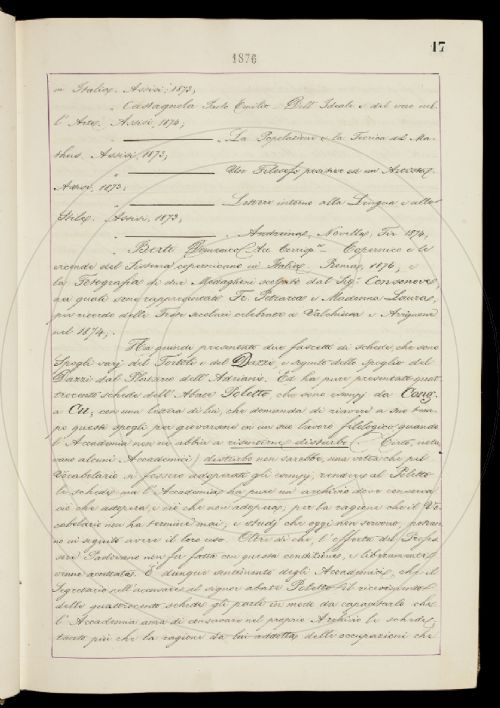 17
1876
in Italia. Assisi, 1873;
" Castagnola Paolo Emilio. Dell' Ideale e del vero nel-
l' Arte. Assisi, 1874;
" La Popolazione e la Teorica del Mal-
thus. Assisi, 1873;
" Un Filosofo positivo ed un
Assisi, 1873;
" Lettere intorno alla Lingua e allo
Stile. Assisi, 1873;
" Andreina, Novella, 1874;
" Berti Domenico Acc. Corrisp.te Copernico e le
vicende del Sistema copernicano in Italia. Roma, 1876; e
la Fotografia di due Medaglioni scolpiti dal Sig. Consonove,
nei quali sono rappresentati Fr. Petrarca e Madonna Laura,
per ricordo delle Feste secolari celebrate a Valchiusa e Avignone
nel 1874;
Ha quindi presentato due fascetti di schede, che sono
Spogli varj del Tortoli e del Dazzi, e seguito dello spoglio del
Pazzi dal Plutarco dell' Adriani. Ed ha pure presentato quat-
trocento schede dell' Abate Poletto, che sono esempj da Cong.
a Cu; con una lettera di lui, che domanda di riavere a suo tem-
po questi spogli per giovarsene in un suo lavoro filologico quando
l' Accademia non ne abbia a risentirne disturbo. Certo, nota-
vano alcuni Accademici, disturbo non sarebbe, una volta che pel
Vocabolario si fossero adoperati gli esempj, rendere al Poletto
le schede: ma l' Accademia ha pure un archivio dove conserva
ciò che adopera, e ciò che non adopera; per la ragione che il Vo-
cabolario non ha termine mai, e studj che oggi non servono, potran-
no in seguito avere il loro uso. Oltre di che l' offerta del Profes-
sore Padovano non fu fatta con questa condizione, e liberamente
venne accettata. È dunque sentimento degli Accademici, che il
Segretario nell' accusare al signor abate Poletto il ricevimento
delle quattrocento schede gli parli in modo da capacitarlo che
l' Accademia ama di conservare nel proprio Archivio le schede;
tanto più che la ragione da lui addotta delle occupazioni che